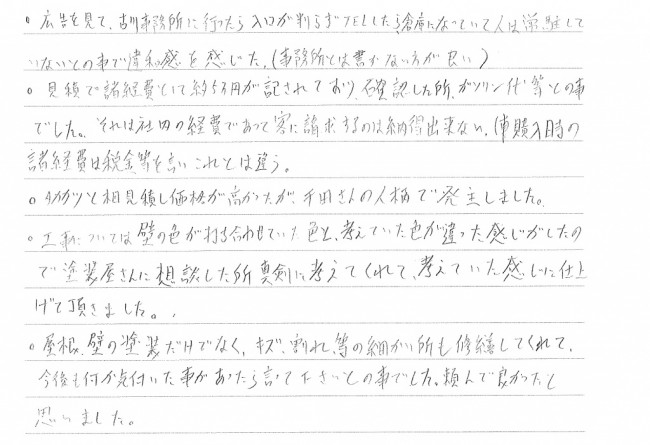 。広告を見て、古川事務所に行ったら入口が判らずTELしたら倉庫になっていて人は常駐して
いないとの事で違和感を感じた。(事務所とは書かない方が良い)
。見積で諸経費として約5万円が記されており、確認した所、ガソリン代等との事
でした。それは社内の経費であって客に請求するのは納得出来ない。(車購入時の
諸経費は税金等を言いこれとは違う。
。と相見積し価格が高かったが、千田さんの人柄で発主しました。
。工事については壁の色が打ち合わせていた色と、考えていた色が違った感じがしたの
で塗装屋さんに想談した所真剣に考えてくれて、考えていた感じに仕上
げて頂きました。
。屋根、壁の塗装だけでなく、キズ、割れ、等の細かい所も修繕してくれて、
今後も何か気付いた事があったら言って下さいとの事でした。頼んで良かったと
思いました。